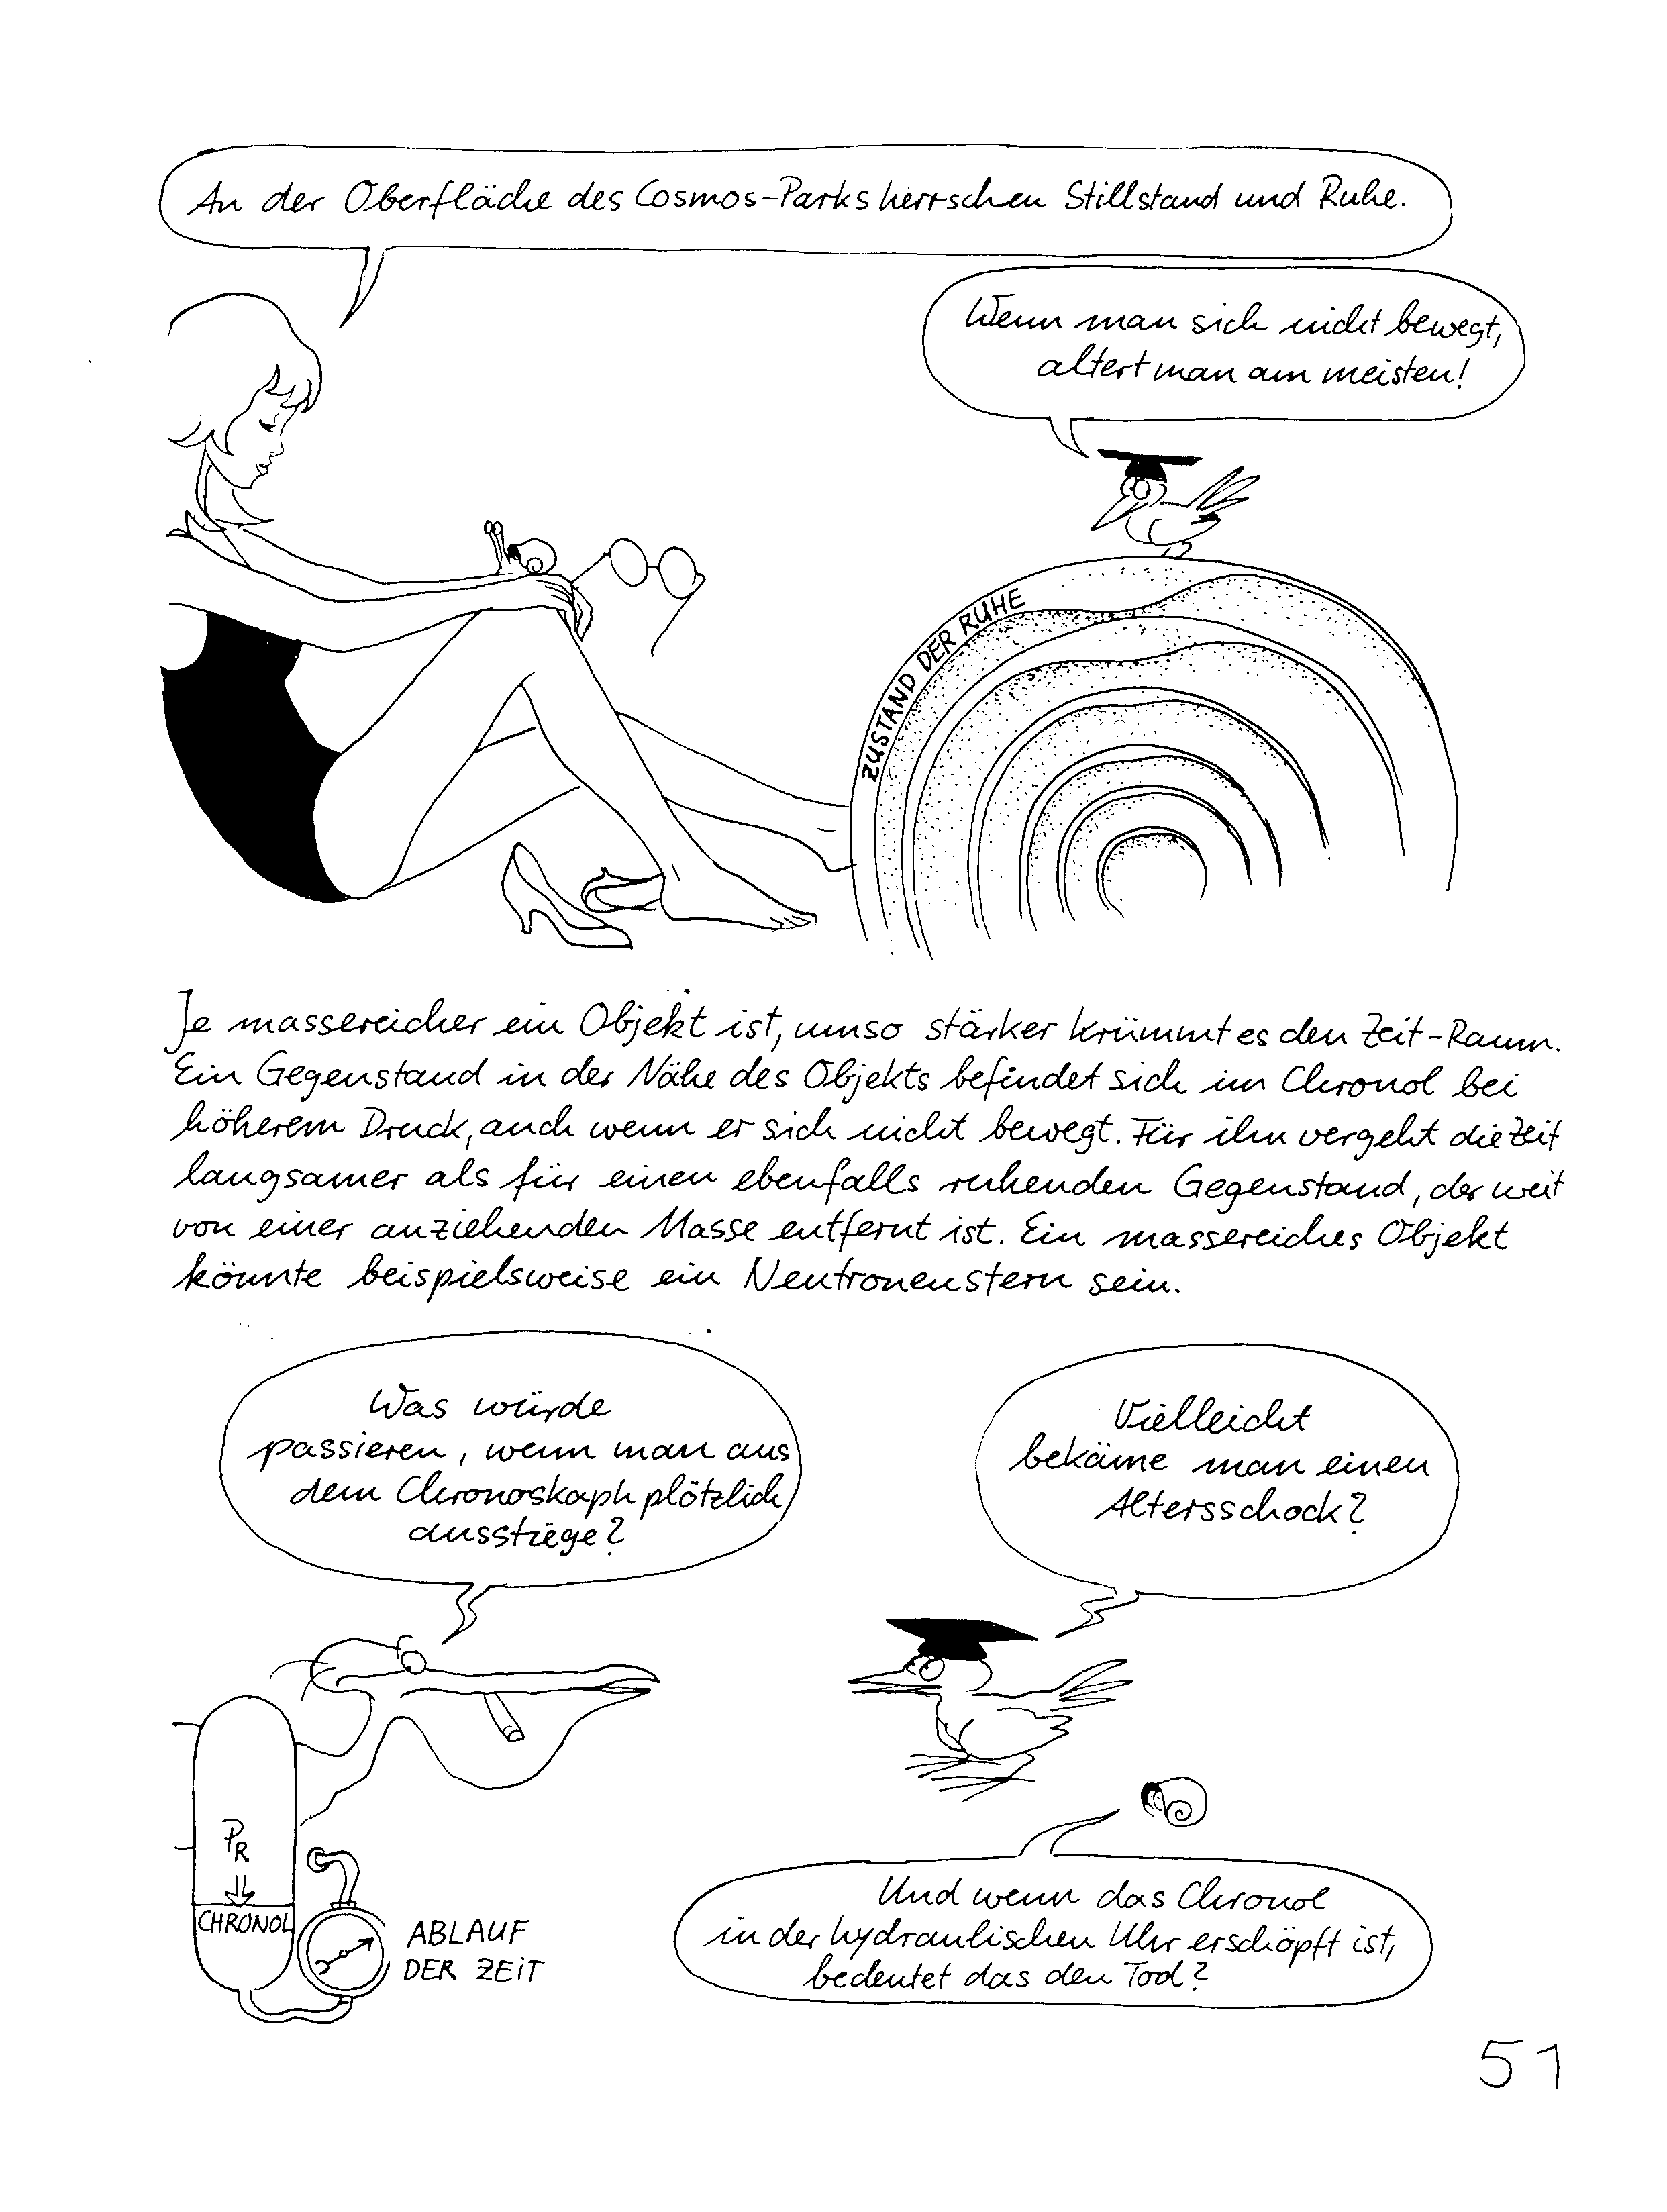 An der Oberfläche des Cosmos-Parks herrschen Stillstand und Ruhe.
Wenn man sich nicht bewegt,
altert man am meisten!
ZUSTAND DER RUHE
Je massereicher ein Objekt ist, umso stärker krümmt es den Zeit-Raum.
Ein Gegenstand in der Nähe des Objekts befindet sich im Chronol bei
höherem Druck, auch wenn er sich nicht bewegt. Für ihn vergeht die Zeit
langsamer als für einen ebenfalls ruhenden Gegenstand, der weit
von einer anziehenden Masse entfernt ist. Ein massereiches Objekt
könnte beispielsweise ein Neutronenstern sein.
Was würde
passieren, wenn man aus
dem Chronoskaph plötzlich
ausstiege?
Vielleicht
bekäme man einen
Altersschock?
PR
CHRONOL
ABLAUF
DER ZEIT
Und wenn das Chronol
in der hydraulischen Uhr erschöpft ist,
bedeutet das den Tod?
51